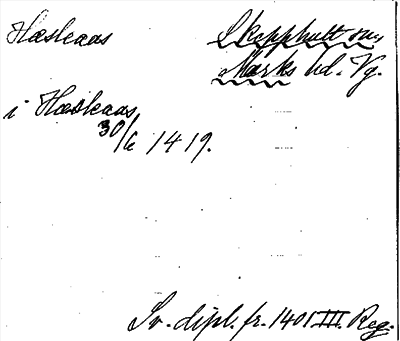 Hæsleaas Skepphult sn,
Marks hd. Vg.
i Hæsleaas
30/6 1419.
Sv. dipl. fr. 1401 III. Reg.